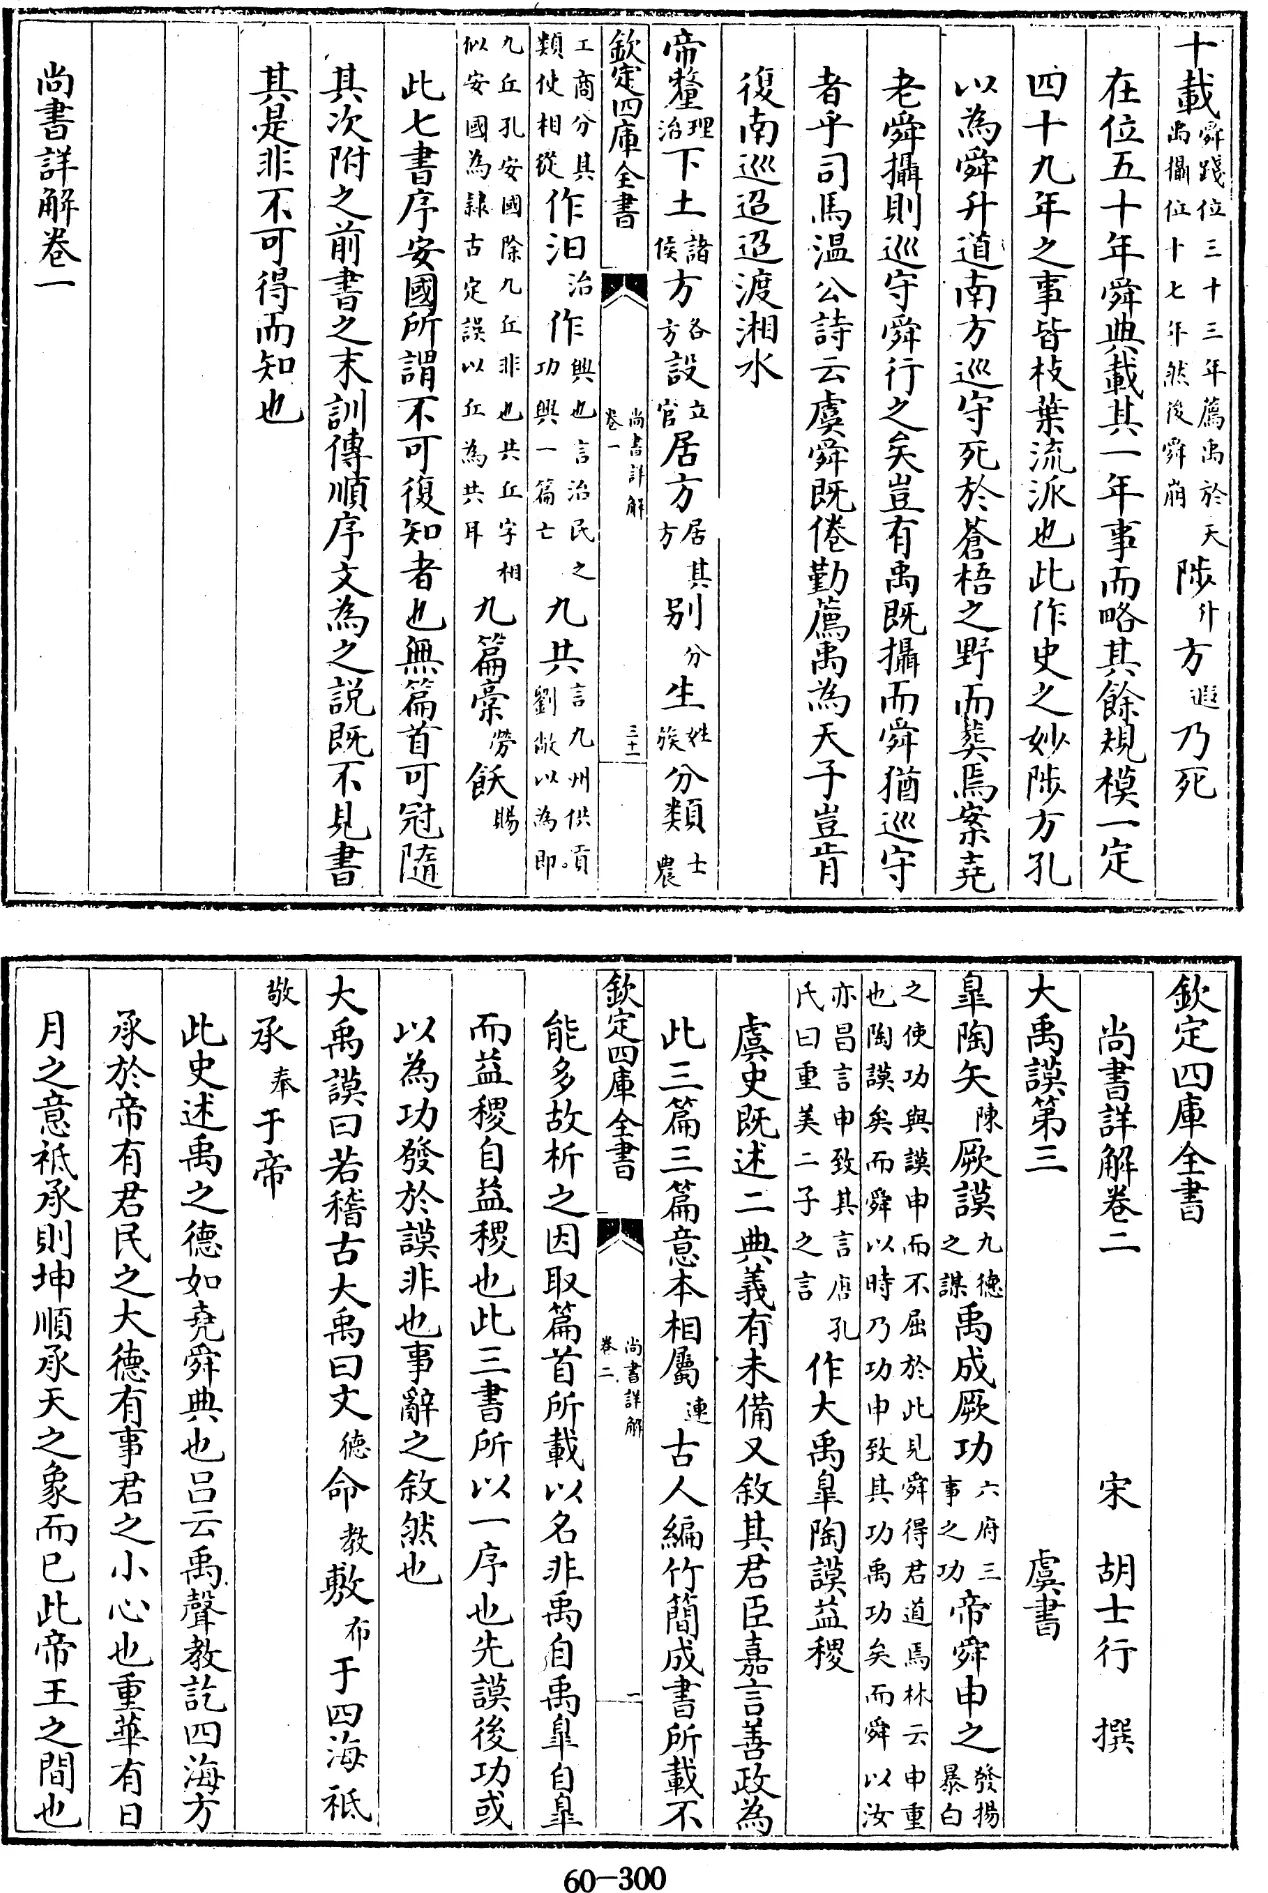 十載舜踐位三十三年薦禹於天禹攝位十七年然後舜崩陟升方遐乃死
在位五十年舜典載其一年事而略其餘規模一定
四十九年之事皆枝葉流派也此作史之妙陟方孔
以為舜升道南方巡守死於蒼梧之野而葬焉案堯
老舜攝則巡守舜行之矣豈有禹既攝而舜猶巡守
者乎司馬溫公詩云虞舜既倦勤薦禹為天子豈肯
復南巡迢迢渡湘水
帝釐理治下土諸侯方各方設立官居方居其方別分生姓族分類士農
欽定四庫全書
尚書詳解
卷一
三十二
工商分其類使相從作汩治作興也言治民之功興一篇亡九共言九州供貢劉敞以為即
九丘孔安國除九丘非也共丘字相似安國為隸古定誤以丘為共耳九篇槀勞飫賜
此七書序安國所謂不可復知者也無篇首可冠隨
其次附之前書之末訓傳順序文為之説既不見書
其是非不可得而知也
尚書詳解卷一
欽定四庫全書
尚書詳解卷二
宋 胡士行 撰
大禹謨第三
虞書
臯陶矢陳厥謨九德之謀禹成厥功六府三事之功帝舜申之發揚暴白
之使功與謨申而不屈於此見舜得君道焉林云申重也陶謨矣而舜以時乃功申致其功禹功矣而舜以汝
亦昌言申致其言唐孔氏曰重美二子之言作大禹臯陶謨益稷
虞史既述二典義有未備又敘其君臣嘉言善政為
此三篇三篇意本相屬連古人編竹簡成書所載不
欽定四庫全書
尚書詳解
卷二
一
能多故析之因取篇首所載以名非禹自禹臯自臯
而益稷自益稷也此三書所以一序也先謨後功或
以為功發於謨非也事辭之敘然也
大禹謨曰若稽古大禹曰文德命教敷布于四海祗
敬承奉于帝
此史述禹之德如堯舜典也呂云禹聲教訖四海方
承於帝有君民之大德有事君之小心也重華有日
月之意祗承則坤順承天之象而已此帝王之間也
60-300